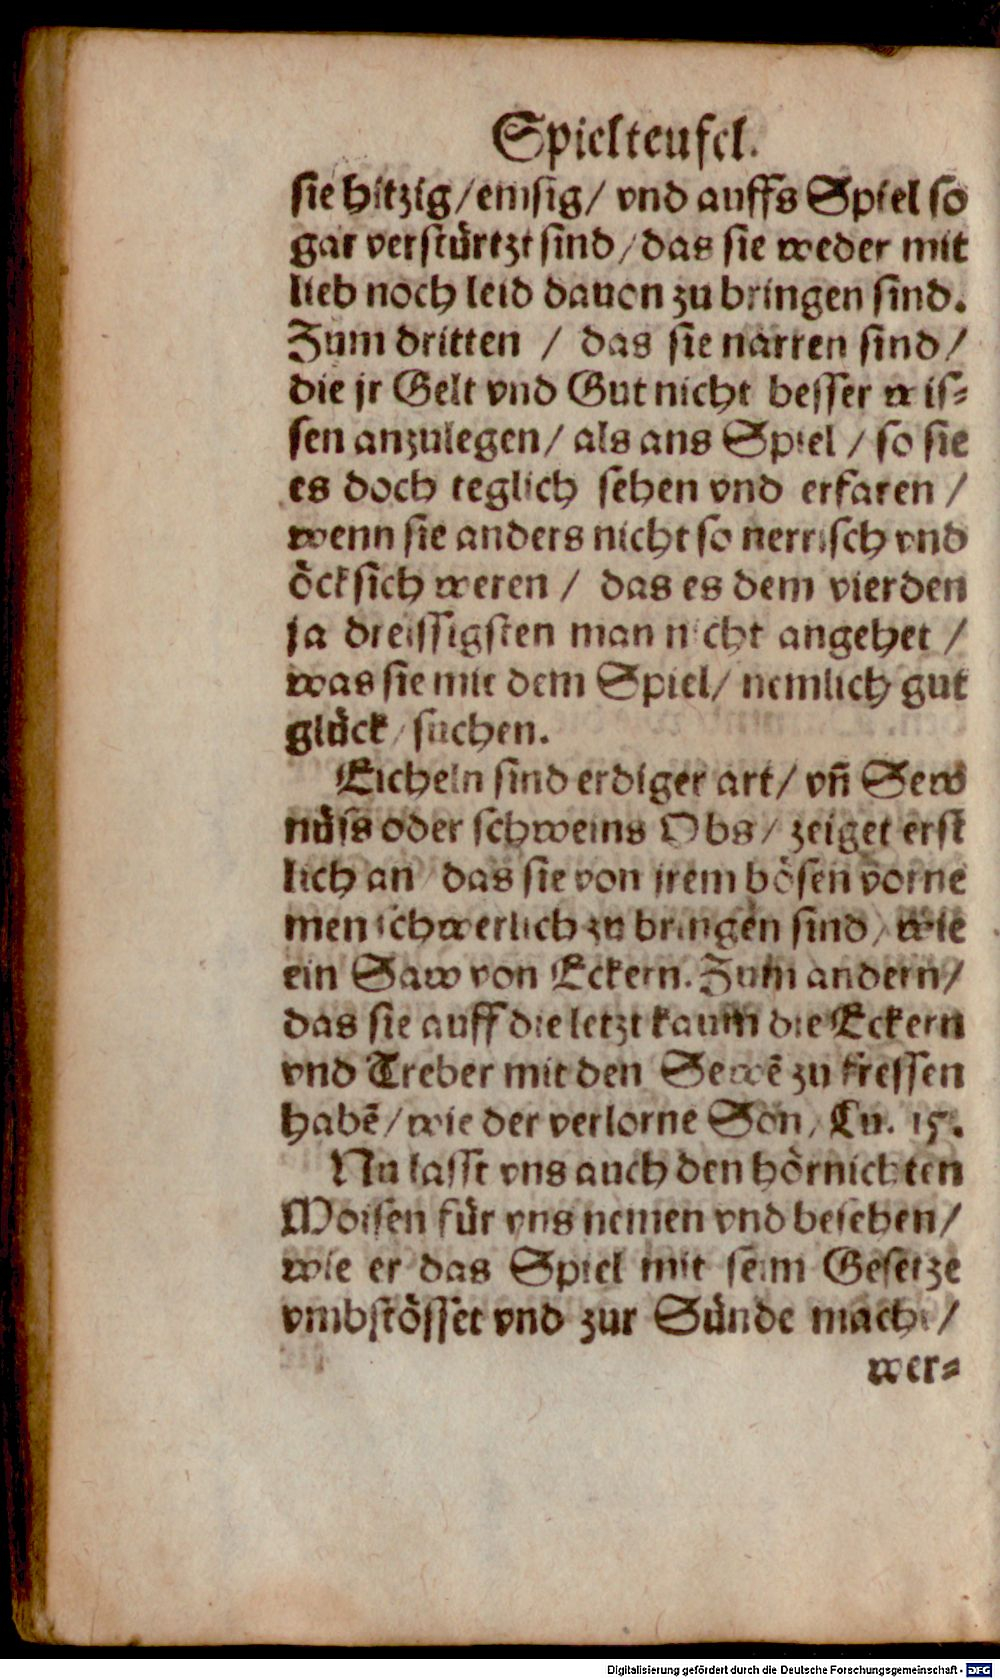 Spielteufel.
sie hitzig/emsig/ vnd auffs Spiel so
gar verstürtzt sind/das sie weder mit
lieb noch leid dauon zu bringen sind.
Zum dritten / das sie narren sind/
die jr Gelt vnd Gut nicht besser wis⸗
sen anzulegen/ als ans Spiel / so sie
es doch teglich sehen vnd erfaren /
wenn sie anders nicht so nerrisch vnd
öcksich weren / das es dem vierden
ja dreissigsten man nicht angehet /
was sie mit dem Spiel/ nemlich gut
glück/ suchen.
Eicheln sind erdiger art/ vn̄ Sew
nüss oder schweins Obs/ zeiget erst
lich an das sie von jrem bösen vorne
men schwerlich zu bringen sind/ wie
ein Saw von Eckern. Zum andern/
das sie auff die letzt kaum die Eckern
vnd Treber mit den Sewē zu fressen
habē/wie der verlorne Son, Lu. 15.
Nu lasst vns auch den hörnichten
Moisen für vns nemen vnd besehen/
wie er das Spiel mit seim Gesetze
vmbstösset vnd zur Sünde macht/
wer⸗
Digitalisierung gefördert durch die Deutsche Forschungsgemeinschaft - DFG